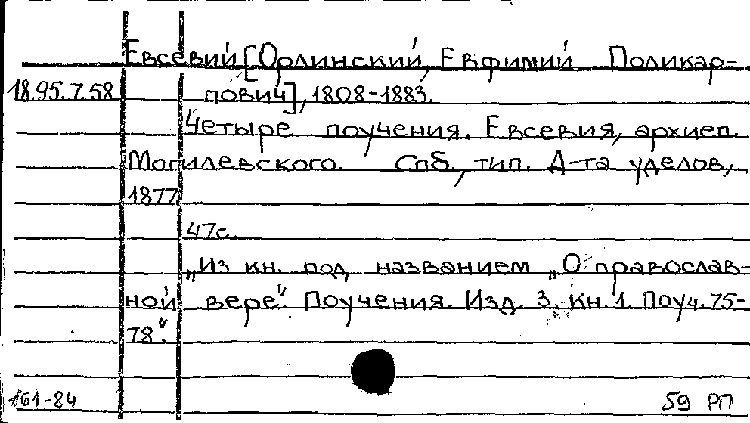 Евсевий [Орлинский, Евфимий Поликар-
18.95.7.58 пович], 1808-1883.
Четыре поучения. Евсевия, архиеп.
Могилевского. Спб., тип. Д-та уделов,
1877
47с.
„Из кн. под названием „О православ-
ной вере". Поучения. Изд. 3. кн. 1. Поуч. 75-
78".
161-84 59 РП